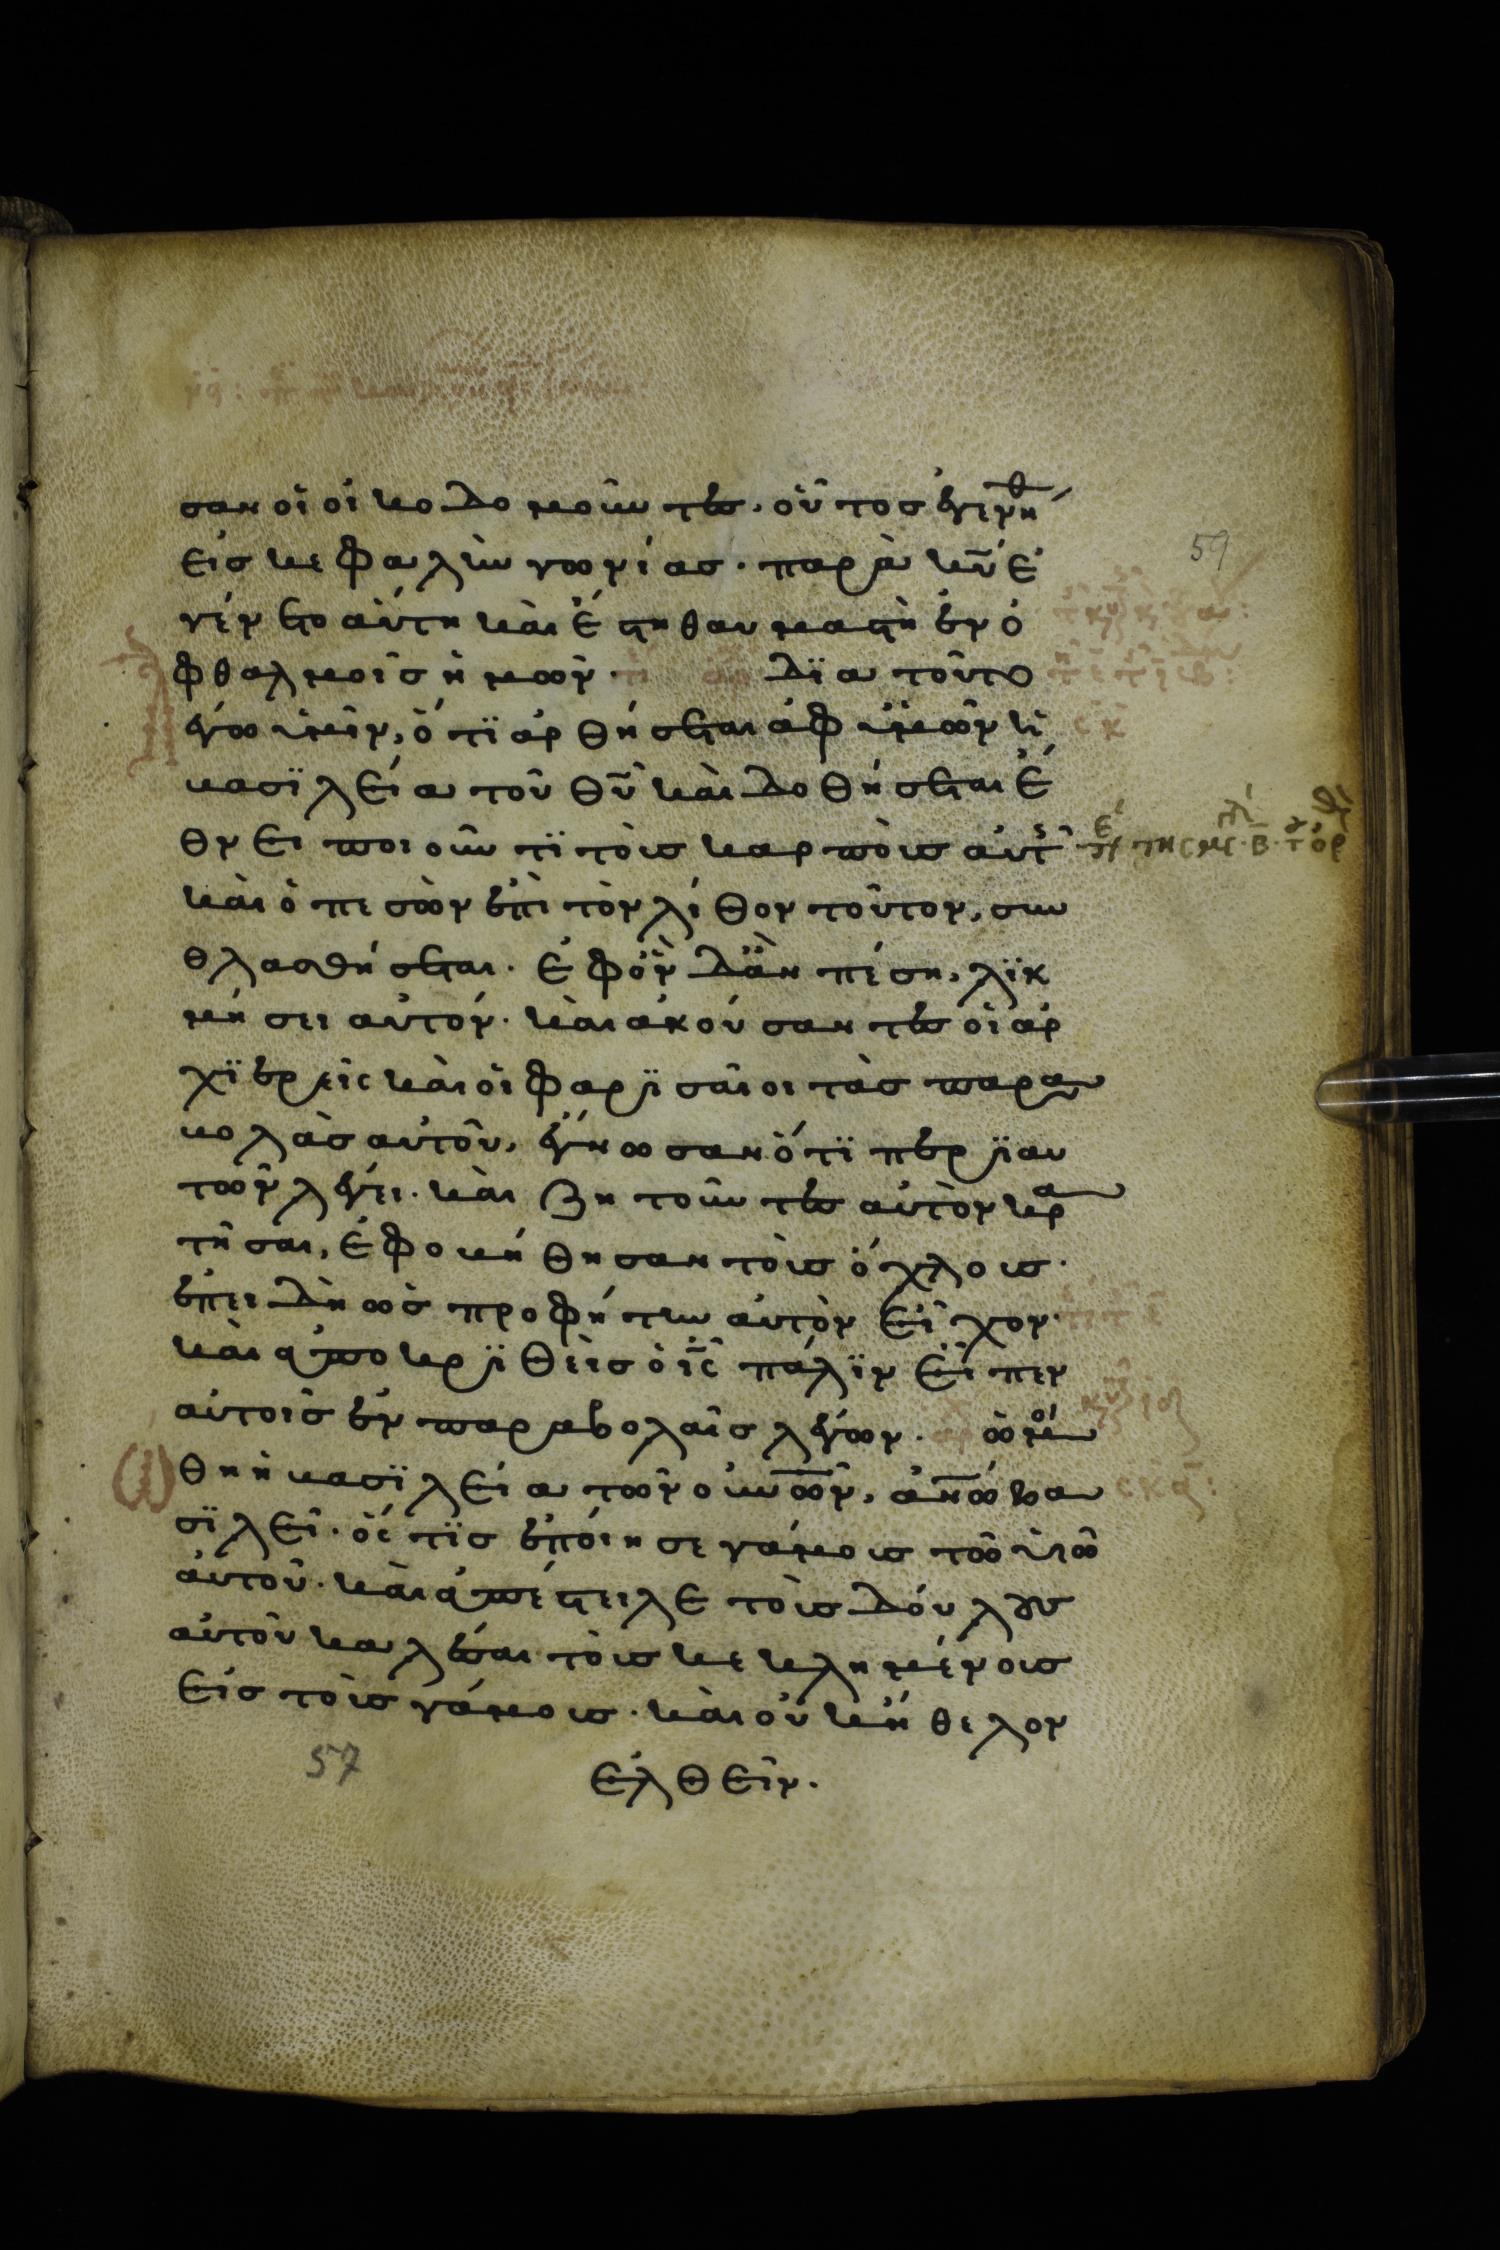 σαν οἱ οἰκοδομοῦντες. οὗτος ἐγενήθ
εἰς κεφαλὴν γωνίας. παρὰ κῡ ἐ
γένετο αὕτη καὶ ἔστη θαυμαστὴ ἐν ὀ
φθαλμοῖς ἡμῶν. διατοῦτο
λέγω ὑμῖν, ὅτι ἀρθήσεται ἀφ ὑμῶν ἡ
βασιλεία τοῦ θῡ καὶ δοθήσεται ἔ
θνει ποιοῦντι τοὺς καρποὺς αὐτῆς
καὶ ὁ πεσὼν ἐπὶ τὸν λίθον τοῦτον, συν
θλασθήσεται. ἐφ ὃν δ ἂν πέση, λικ
μήσει αὐτόν. καὶ ἀκούσαντες οἱ ἀρ
χιερεῖς καὶ οἱ φαρισαῖοι τὰς παρα
βολὰς αὐτοῦ, ἔγνωσαν ὅτι περὶ αυ
τῶν λέγει. καὶ ζητοῦντες αὐτὸν κρα
τῆσαι, ἐφοβήθησαν τοὺς ὄχλους.
ἐπειδὴ ὡς προφήτην αὐτὸν εἶχον.
καὶ ἀποκριθεὶς ὁ ἰ̄ς̄ πάλιν εἶπεν
αὐτοῖς ἐν παραβολαῖς λέγων. ὡμοιώ
θη ἡ βασιλεία τῶν οὐνῶν, ἀνω βα
σιλεῖ. ὅστις ἐποίησε γάμους τῶ υἱῶ
αὐτοῦ. καὶ ἀπέστειλε τοὺς δούλους
αὐτοῦ καλέσαι τοὺς κεκλημένους
εἰς τοὺς γάμους. καὶ οὐκ ἤθελον
ἐλθεῖν.
59
57